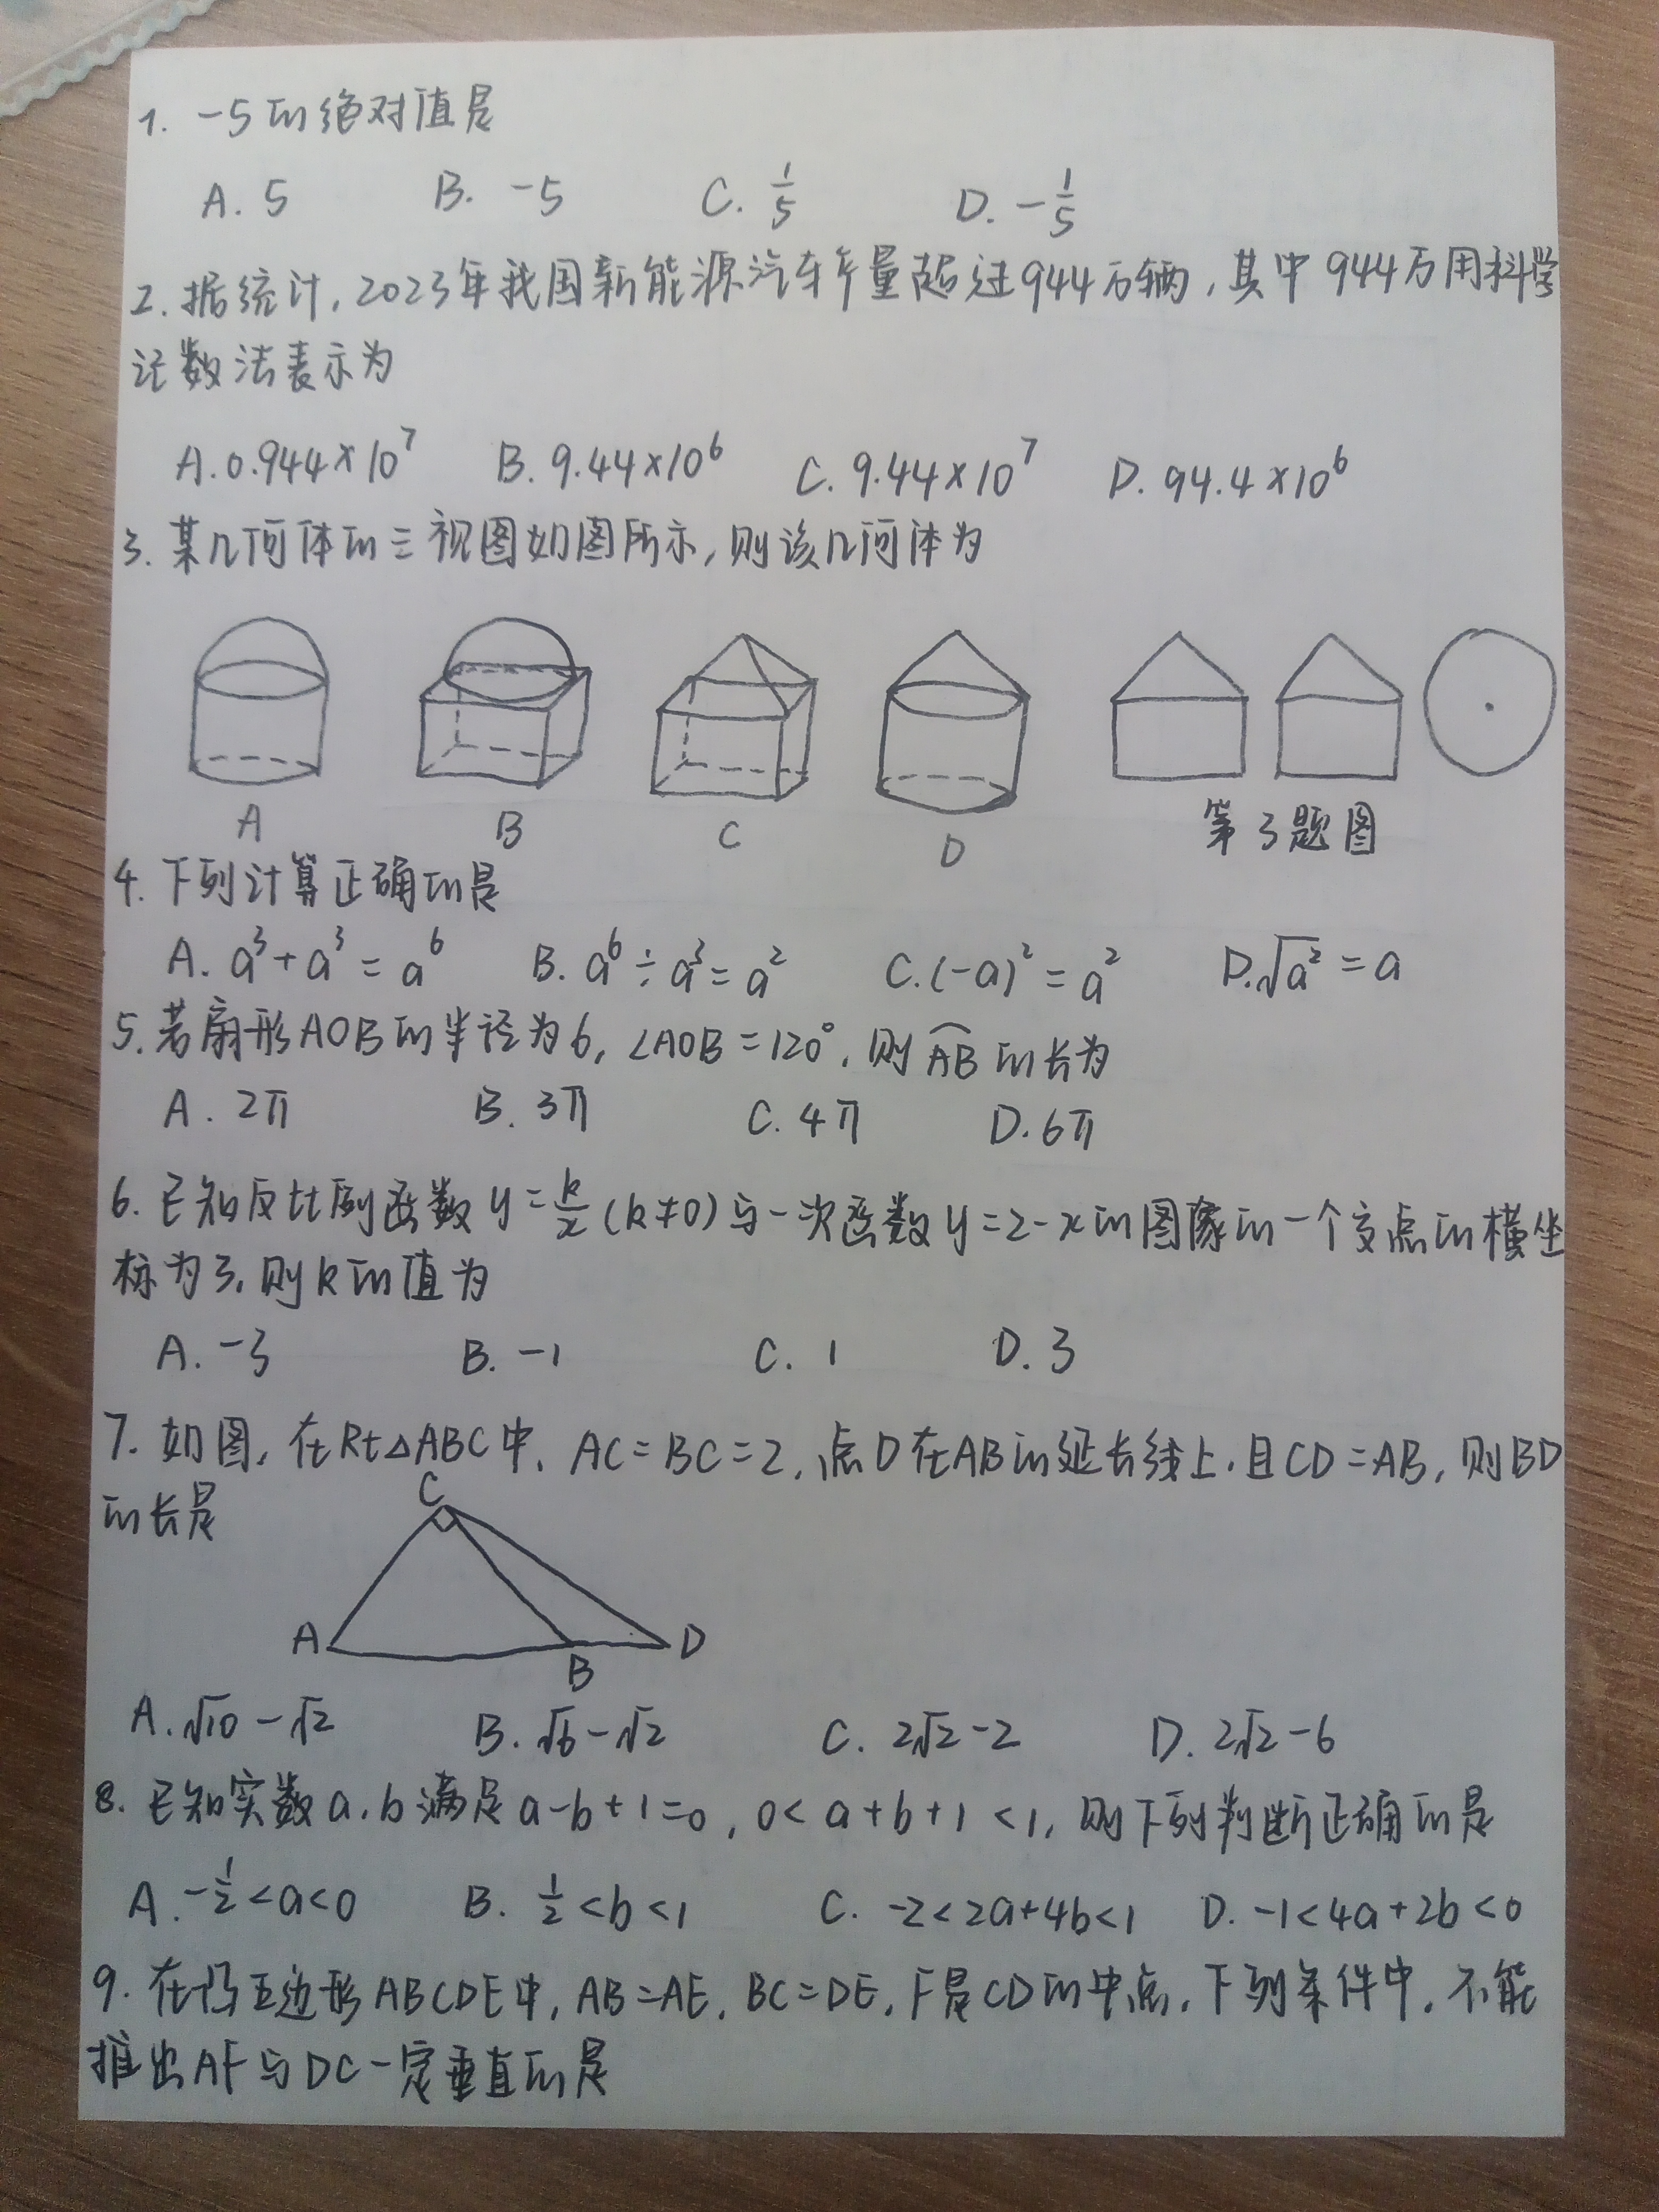 1. -5的绝对值是
A. 5 B. -5 C. 1/5 D. -1/5
2. 据统计,2023年我国新能源汽车产量超过944万辆,其中944万用科学
记数法表示为
A. 0.944×10⁷ B. 9.44×10⁶ C. 9.44×10⁷ D. 94.4×10⁶
3. 某几何体的三视图如图所示,则该几何体为
A B C D 第3题图
4. 下列计算正确的是
A. a³+a³=a⁶ B. a⁶÷a³=a² C. (-a)²=a² D. √a²=a
5. 若扇形AOB的半径为6,∠AOB=120°,则AB的长为
A. 2π B. 3π C. 4π D. 6π
6. 已知反比例函数y=k/x(k≠0)与一次函数y=2-x的图象的一个交点的横坐
标为3,则k的值为
A. -3 B. -1 C. 1 D. 3
7. 如图,在Rt△ABC中,AC=BC=2,点D在AB的延长线上,且CD=AB,则BD
的长是
C
A B D
A. √10-√2 B. √6-√2 C. 2√2-2 D. 2√2-6
8. 已知实数a,b满足a-b+1=0,0<a+b+1<1,则下列判断正确的是
A. -1/2<a<0 B. 1/2<b<1 C. -2<2a+4b<1 D. -1<4a+2b<0
9. 在凸五边形ABCDE中,AB=AE,BC=DE,F是CD的中点,下列条件中,不能
推出AF与DC一定垂直的是